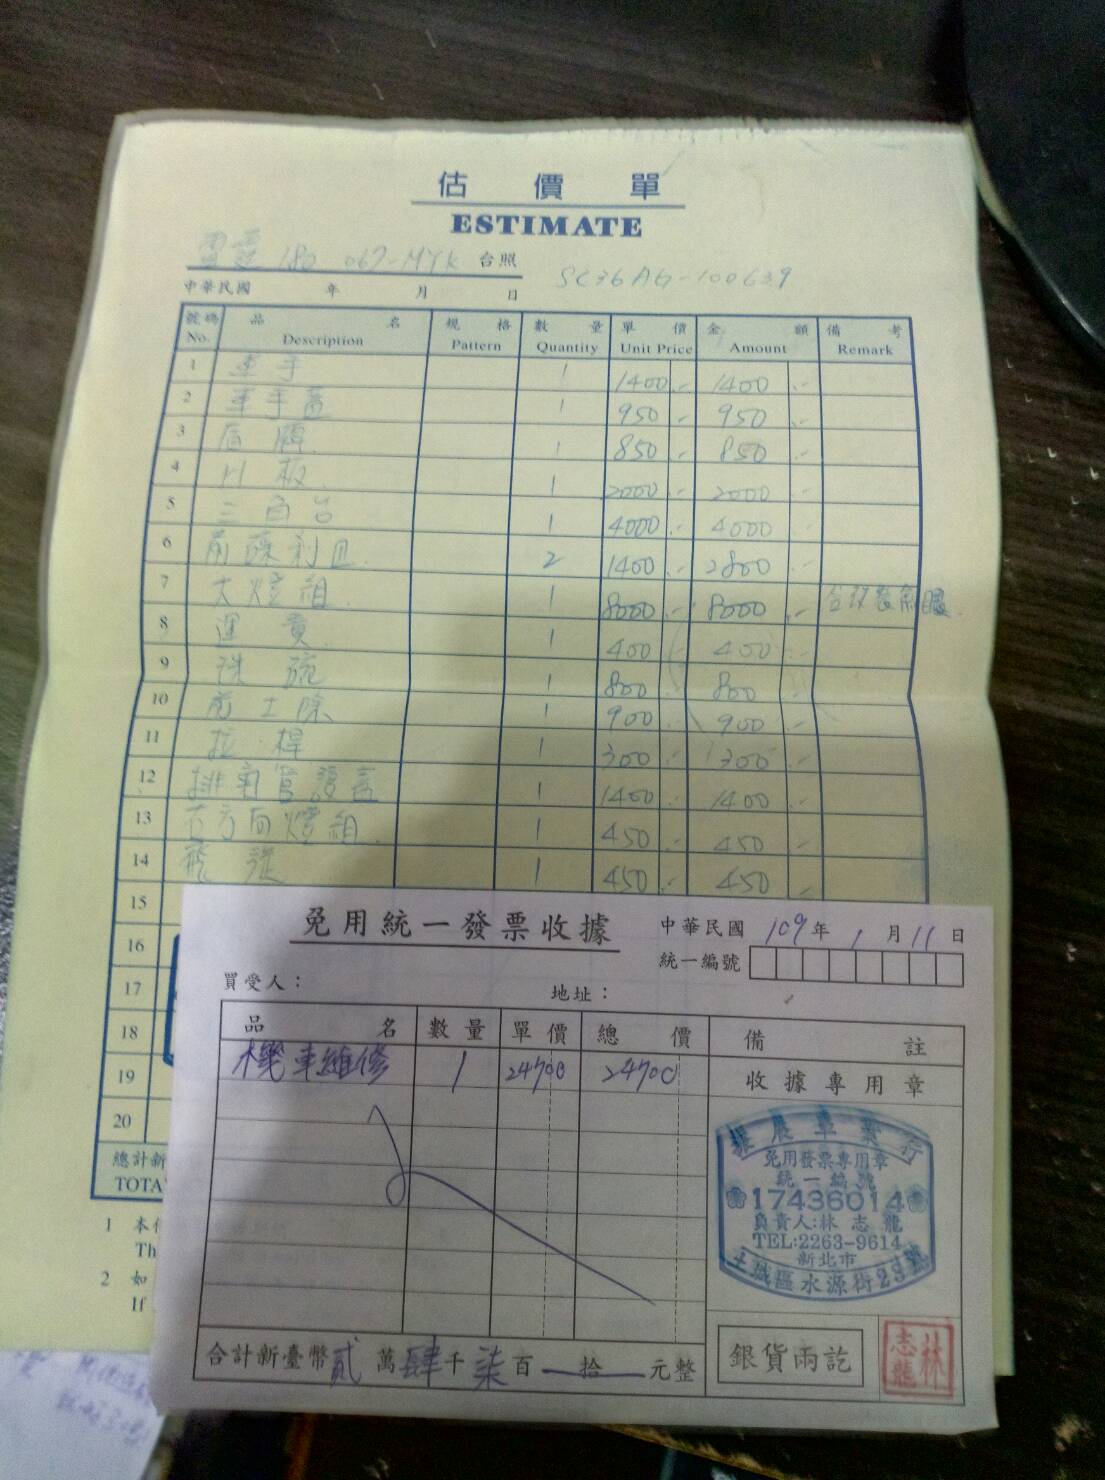 估價單
ESTIMATE
雷霆 180 067-MYK 台照 SC36AG-100639
中華民國 年 月 日
號碼 品名 規格 數量 單價 金額 備考
No. Description Pattern Quantity Unit Price Amount Remark
1 車手 1 1400.- 1400.-
2 車手蓋 1 950.- 950.-
3 1 850.- 850.-
4 H板 1 2000.- 2000.-
5 三角台 1 4000.- 4000
6 2 1400.- 2800.-
7 大燈組 1 8000.- 8000.-
8 運費 1 400 400.-
9 珠碗 1 800 800.-
10 前土除 1 900 900.-
11 拉桿 1 300.- 300.-
12 排氣管護蓋 1 1400.- 1400.-
13 右方向燈組 1 450.- 450.-
14 1 450.- 450.-
15
16
17
18
19
20
總計新
TOTA
1 本
Th
2 如
If
免用統一發票收據
中華民國 109 年 1 月 11 日
統一編號
買受人：
地址：
品名 數量 單價 總價 備註
機車維修 1 24700 24700
收據專用章
振展車業行
免用發票專用章
統一編號
17436014
負責人:林志龍
TEL:2263-9614
新北市
土城區水源街23號
合計新臺幣貳萬肆千柒百 拾 元整
銀貨兩訖
林志龍